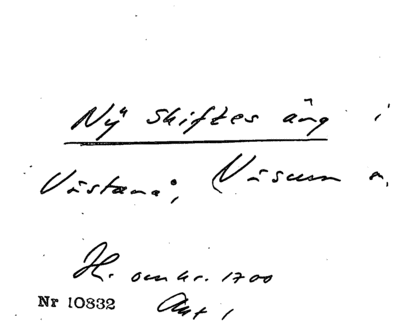 Ny skiftes äng i
Västanå, Näsum s.
H. omkr. 1700
Nr 10832 Akt 1